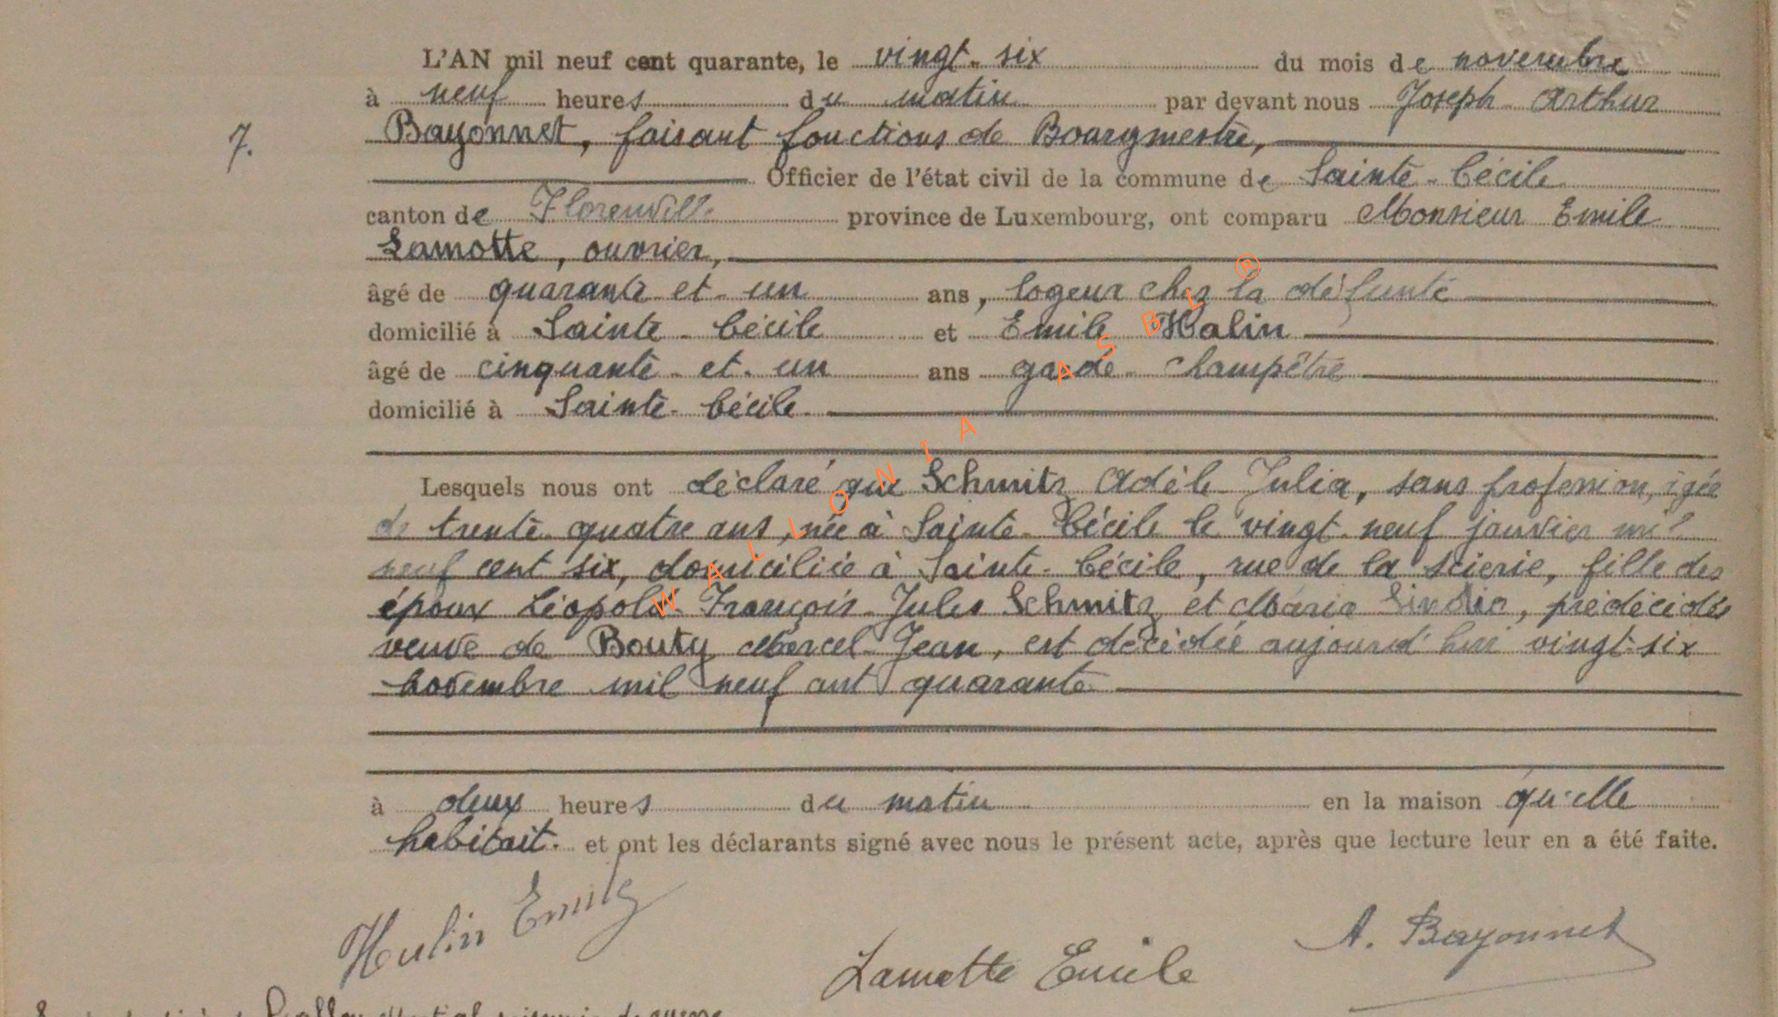 L'AN mil neuf cent quarante, le vingt-six du mois de novembre
à neuf heures du matin par devant nous Joseph Arthur
7. Bayonnet, faisant fonctions de Bourgmestre,
Officier de l'état civil de la commune de Sainte-Cécile
canton de Florenville province de Luxembourg, ont comparu Monsieur Emile
Lamotte, ouvrier,
âgé de quarante et un ans, logeur chez la défunte
domicilié à Sainte-Cécile et Emile Halin
âgé de cinquante et un ans garde champêtre
domicilié à Sainte-Cécile
Lesquels nous ont déclaré que Schmitz Adèle Julia, sans profession, âgée
de trente-quatre ans, née à Sainte-Cécile le vingt-neuf janvier mil
neuf cent six, domiciliée à Sainte-Cécile, rue de la scierie, fille des
époux Léopold François Jules Schmitz et Maria, prédécédés
veuve de Bouty Marcel Jean, est décédée aujourd'hui vingt-six
novembre mil neuf cent quarante
à deux heures du matin en la maison qu'elle
habitait. et ont les déclarants signé avec nous le présent acte, après que lecture leur en a été faite.
Hulin Emile
Lamotte Emile
A. Bayonnet
WALLONIA ASBL ®